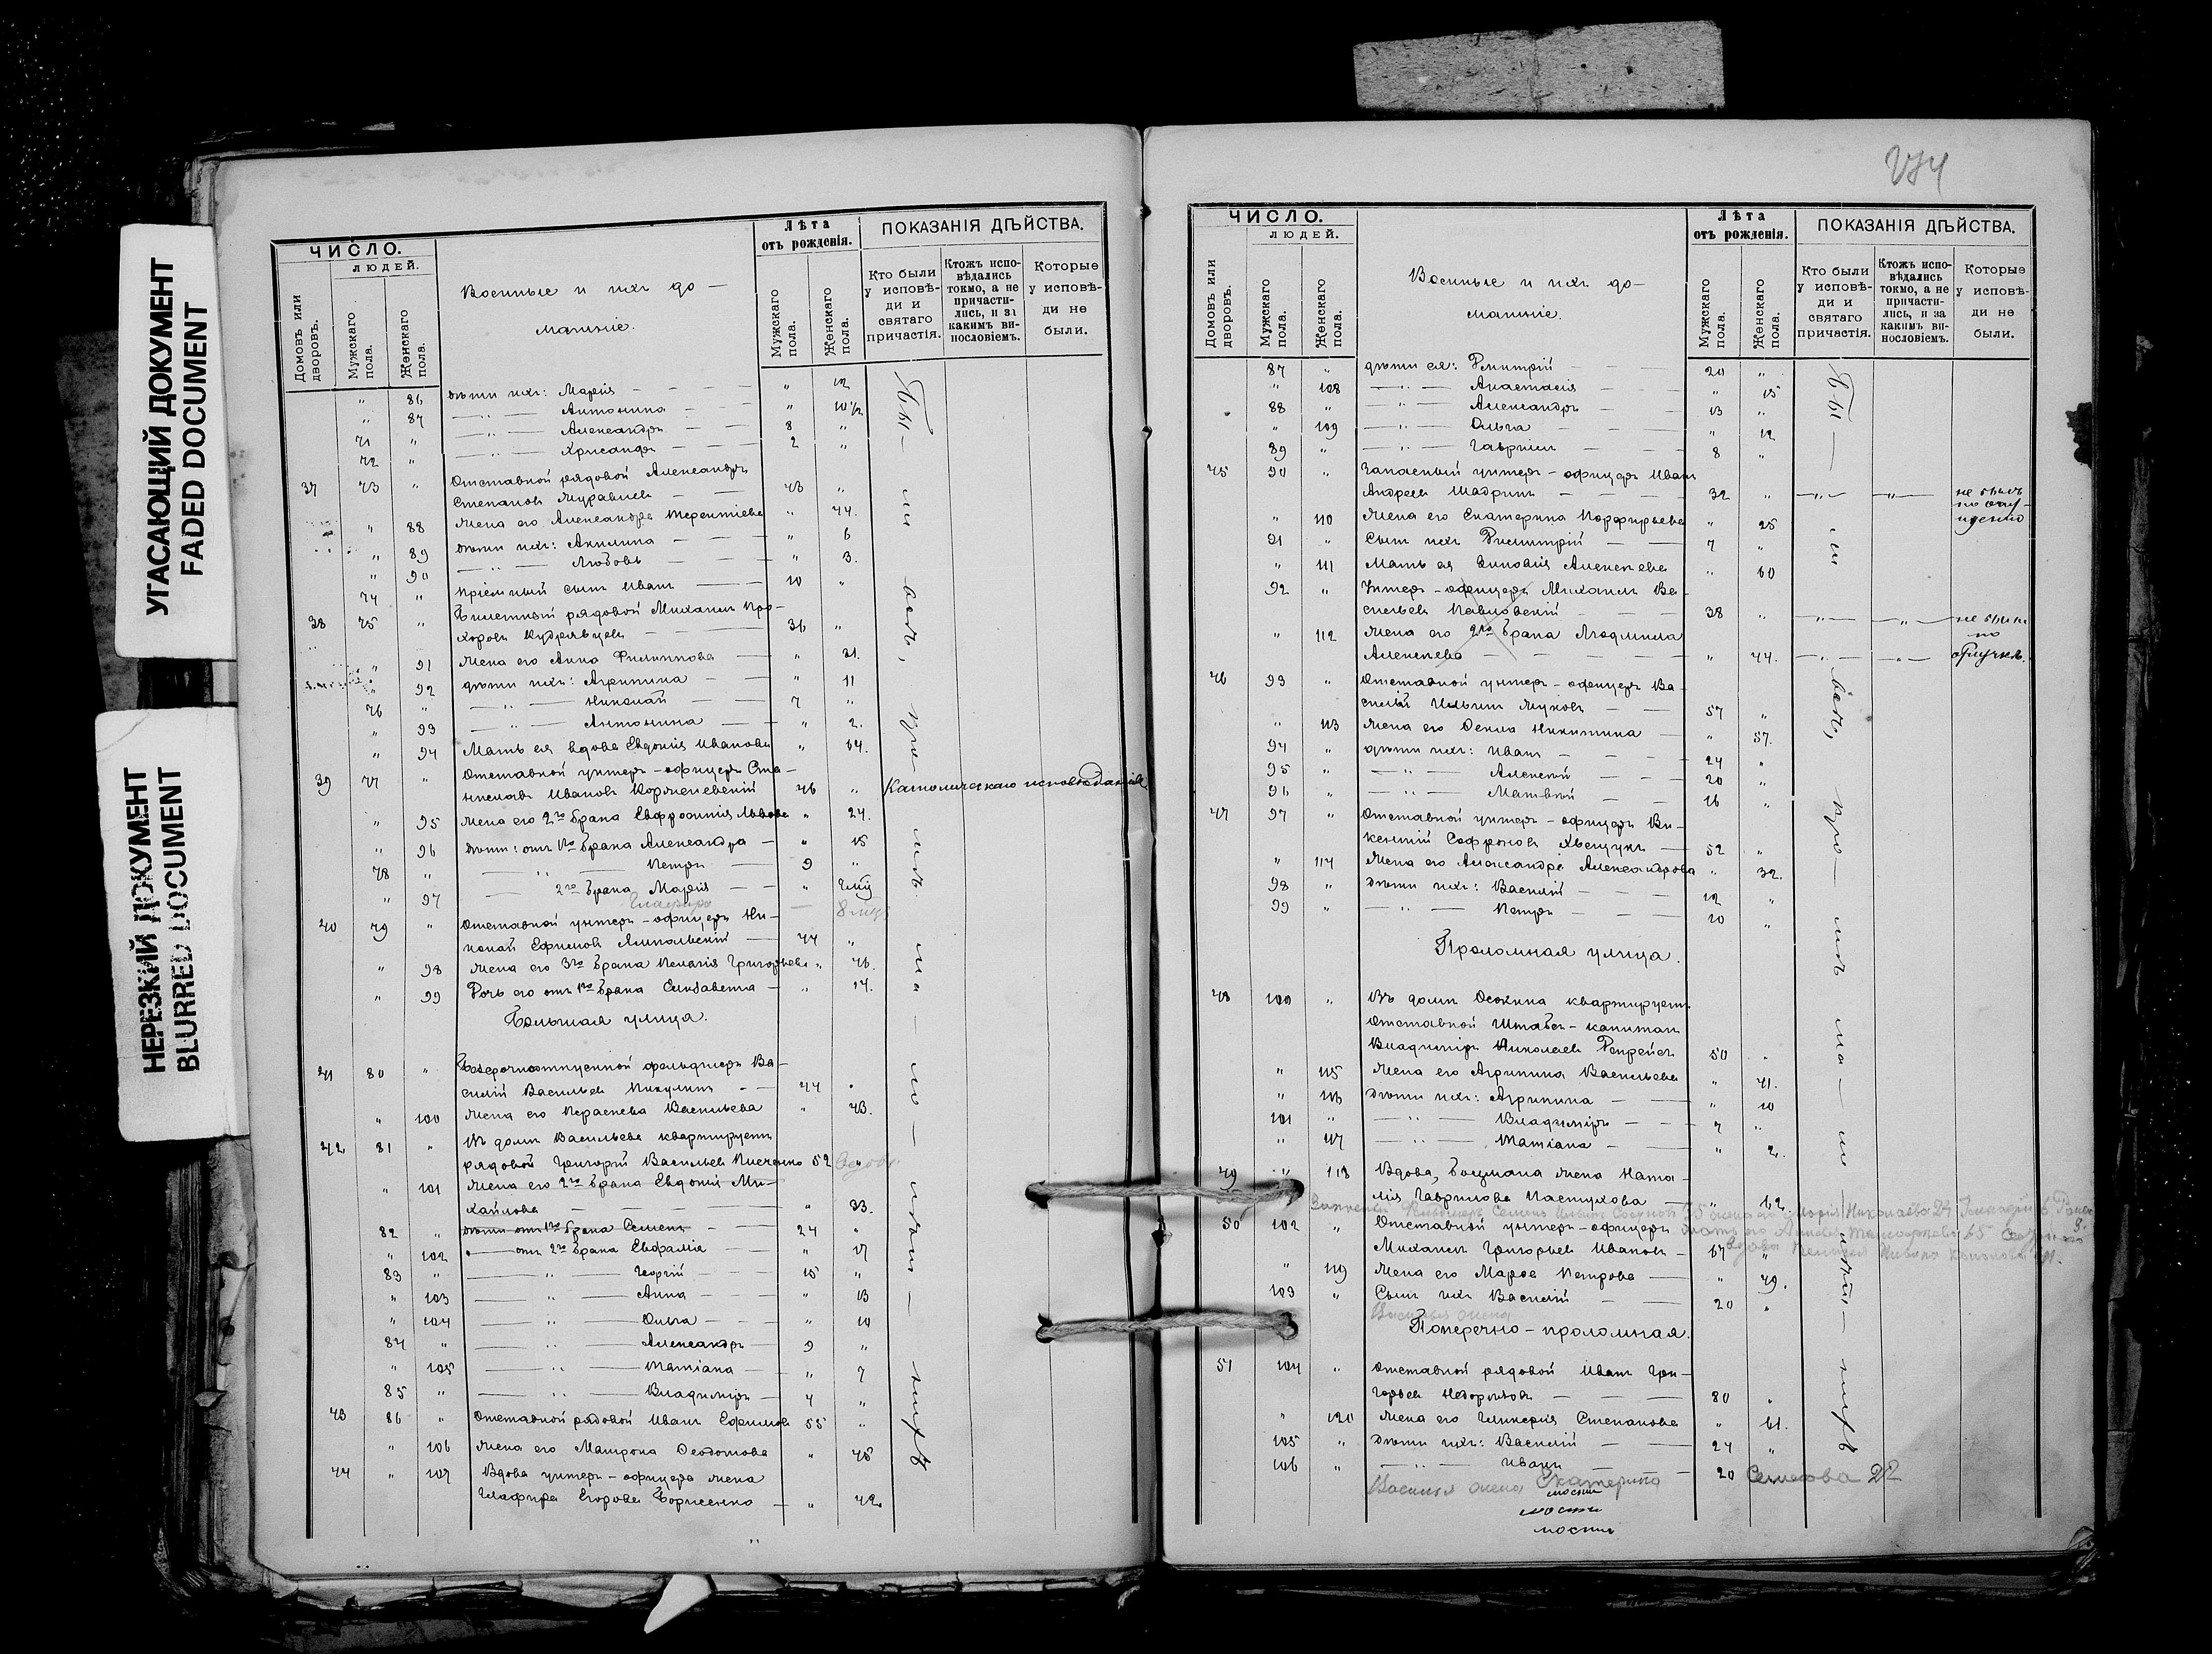 УГАСАЮЩИЙ ДОКУМЕНТ
FADED DOCUMENT
НЕРЕЗКИЙ ДОКУМЕНТ
BLURRED DOCUMENT
ЧИСЛО.
ЛЮДЕЙ.
Домовъ или дворовъ.
Мужскаго пола.
Женскаго пола.
Военные и ихъ до-
машніе.
Лѣта
отъ рожденія.
Мужскаго пола.
Женскаго пола.
ПОКАЗАНІЯ ДѢЙСТВА.
Кто были у исповѣди и святаго причастія.
Ктожъ исповѣдались токмо, а не причастились, и за какимъ винословіемъ.
Которые у исповѣди не были.
„ 86 дѣти ихъ: Марія — „ 12
„ 87 — „ — Антонина — „ 10 1/2
71 „ — „ — Александръ — 8 „
72 „ — „ — Хрисанфъ — 2 „
37 73 „ Отставной рядовой Александръ
Степановъ Муравьевъ — 43 „
„ 88 Жена его Александра Терентіева „ 44.
„ 89 дѣти ихъ: Акилина — „ 6
„ 90 — „ — Любовь — „ 3.
74 „ Пріемный сынъ Иванъ — 10 „
38 75 „ Билетный рядовой Михаилъ Про-
хоровъ Кудрявцевъ — 36 „
„ 91 Жена его Анна Филиппова — „ 31.
„ 92 дѣти ихъ: Агрипина — „ 11
76 „ — „ — Николай — 7 „
„ 93 — „ — Антонина — „ 2.
„ 94 Мать ея вдова Евдокія Иванова „ 64.
39 77 „ Отставной унтеръ-офицеръ Ста-
ниславъ Ивановъ Корженевскій 46 „ Католическаго исповѣданія
„ 95 Жена его 2го брака Евфросинія Львова „ 24.
„ 96 Дѣти: отъ 1го брака Александра — „ 15
78 „ — „ — Петръ — 9 „
„ 97 — 2го брака Марія — „
Глафира — 8 мѣс
40 79 „ Отставной унтеръ-офицеръ Ни-
колай Ефимовъ — 44 „
„ 98 Жена его 3го брака Пелагія Григорьева „ 46.
„ 99 Дочь его отъ 1го брака Елизавета — „ 14.
Большая улица.
41 80 „ фельдшеръ Ва-
силій Васильевъ Никулинъ — 44 „
„ 100 Жена его Параскева Васильева „ 43.
42 81 „ Въ домѣ Васильева квартируетъ
рядовой Григорій Васильевъ 52 вдовъ
„ 101 Жена его 2го брака Евдокія Ми-
хайлова — „ 33.
82 „ дѣти отъ 1го брака Семенъ — 24 „
„ 102 — отъ 2го брака Евфалія — „ 17
83 „ — „ — Георгій — 15 „
„ 103 — „ — Анна — „ 13
„ 104 — „ — Ольга — „ 10
84 „ — „ — Александръ — 9 „
„ 105 — „ — Татіана — „ 7
85 „ — „ — Владиміръ — 4 „
43 86 „ Отставной рядовой Иванъ Ефимовъ 55 „
„ 106 Жена его Матрона Ѳеодотова „ 45
44 „ 107 Вдова унтеръ-офицера жена
Глафира Егорова Борисенко — „ 42.
Бы-
ли
всѣ,
кро-
мѣ
на-
но-
нѣтъ-
нихъ
ЧИСЛО.
ЛЮДЕЙ.
Домовъ или дворовъ.
Мужскаго пола.
Женскаго пола.
Военные и ихъ до-
машніе.
Лѣта
отъ рожденія.
Мужскаго пола.
Женскаго пола.
ПОКАЗАНІЯ ДѢЙСТВА.
Кто были у исповѣди и святаго причастія.
Ктожъ исповѣдались токмо, а не причастились, и за какимъ винословіемъ.
Которые у исповѣди не были.
87 „ дѣти ея: Димитрій — 20 „
„ 108 — „ — Анастасія — „ 15
88 „ — „ — Александръ — 13 „
„ 109 — „ — Ольга — „ 12
89 „ — „ — Гавріилъ — 8 „
45 90 „ Запасный унтеръ-офицеръ Иванъ
Андреевъ Шадринъ — 32 „ — „ — — „ — не былъ
„ 110 Жена его Екатерина Порфирьева „ 25
91 „ Сынъ ихъ Димитрій — 7 „
„ 111 Мать ея Зиновія Алексѣева „ 60
92 „ Унтеръ-офицеръ Михаилъ Ва-
сильевъ Павловскій — 38 „ — „ — — „ — не были по
„ 112 Жена его 2го брака Людмила
Алексѣева — „ 44. — „ — — „ — отлучкѣ.
46 93 „ Отставной унтеръ-офицеръ Ва-
силій Ильинъ Жуковъ — 57 „
„ 113 Жена его Ѳекла Никитина — „ 57.
94 „ дѣти ихъ: Иванъ — 24 „
95 „ — „ — Алексѣй — 20 „
96 „ — „ — Матвѣй — 16 „
47 97 „ Отставной унтеръ-офицеръ Ви-
кентій Софроновъ — 52 „
„ 114 Жена его Александра Александрова „ 32.
98 „ Дѣти ихъ: Василій — 12 „
99 „ — „ — Петръ — 10 „
Проломная улица.
48 100 „ Въ домѣ Осокина квартируетъ
отставной Штабсъ-капитанъ
Владиміръ Николаевъ 50 „
„ 115 Жена его Агрипина Васильева „ 41.
„ 116 Дѣти ихъ: Агрипина — „ 10
101 „ — „ — Владиміръ — 7 „
„ 117 — „ — Татіана — „ 2.
49 „ 118 Вдова, боцмана жена Ната-
лія Гаврилова Пастухова — „ 62.
50 102 „ Отставной унтеръ-офицеръ
Михаилъ Григорьевъ Ивановъ — 67 „
„ 119 Жена его Марѳа Петрова — „ 49.
103 „ Сынъ ихъ Василій — 20 „
Василья жена
Поперечно-проломная.
51 104 „ Отставной рядовой Иванъ Гри-
горьевъ — 80 „
„ 120 Жена его Гликерія Степанова „ 61.
105 „ Дѣти ихъ: Василій — 24 „
106 „ — „ — Иванъ — 20
Василья жена Екатерина Семенова 22
Бы-
ли
всѣ,
кро-
мѣ
на-
но-
нѣтъ-
нихъ